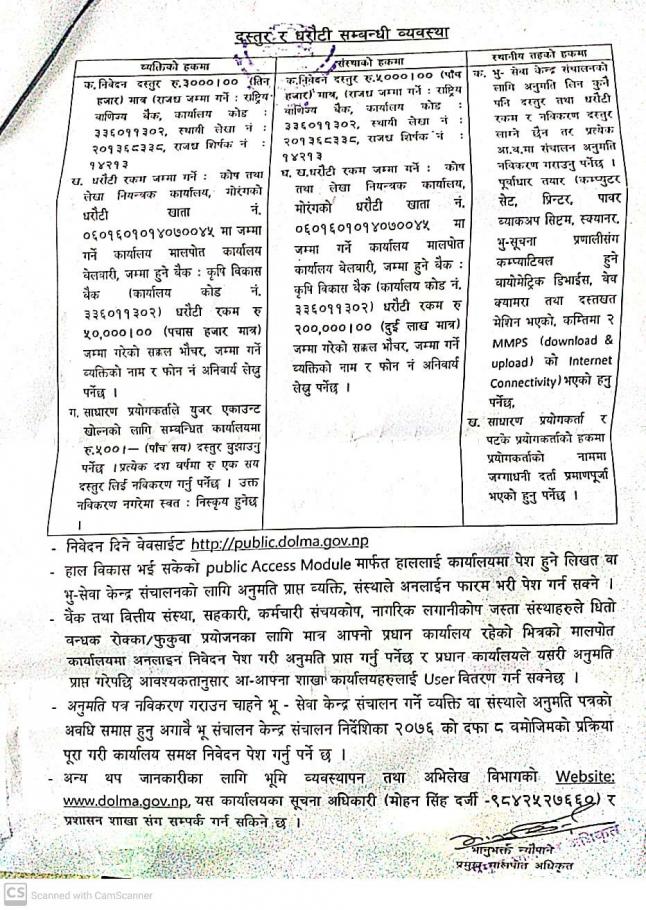 दस्तुर र धरौटी सम्बन्धी व्यवस्था
व्यक्तिको हकमा
क. निवेदन दस्तुर रु.३०००।०० (तिन
हजार) मात्र (राजश्व जम्मा गर्ने : राष्ट्रिय
वाणिज्य बैंक, कार्यालय कोड :
३३६०११३०२, स्थायी लेखा नं :
२०१३६८३३८, राजश्व शिर्षक नं :
१४२१३
ख. धरौटी रकम जम्मा गर्ने : कोष तथा
लेखा नियन्त्रक कार्यालय, मोरंगको
धरौटी खाता नं.
०६०१६०१०१४०७००४५ मा जम्मा
गर्ने कार्यालय मालपोत कार्यालय
बेलबारी, जम्मा हुने बैंक : कृषि विकास
बैंक (कार्यालय कोड नं.
३३६०११३०२) धरौटी रकम रु
५०,०००।०० (पचास हजार मात्र)
जम्मा गरेको सक्कल भौचर, जम्मा गर्ने
व्यक्तिको नाम र फोन नं अनिवार्य लेख्नु
पर्नेछ ।
ग. साधारण प्रयोगकर्ताले युजर एकाउन्ट
खोल्नको लागि सम्बन्धित कार्यालयमा
रु.५००।— (पाँच सय) दस्तुर बुझाउनु
पर्नेछ ।प्रत्येक दश वर्षमा रु एक सय
दस्तुर लिई नविकरण गर्नु पर्नेछ । उक्त
नविकरण नगरेमा स्वत : निस्कृय हुनेछ
।
संस्थाको हकमा
क.निवेदन दस्तुर रु.५०००।०० (पाँच
हजार) मात्र, (राजश्व जम्मा गर्ने : राष्ट्रिय
वाणिज्य बैंक, कार्यालय कोड :
३३६०११३०२, स्थायी लेखा नं :
२०१३६८३३८, राजश्व शिर्षक नं :
१४२१३
घ. ख.धरौटी रकम जम्मा गर्ने : कोष
तथा लेखा नियन्त्रक कार्यालय,
मोरंगको धरौटी खाता नं.
०६०१६०१०१४०७००४५ मा
जम्मा गर्ने कार्यालय मालपोत
कार्यालय बेलबारी, जम्मा हुने बैंक :
कृषि विकास बैंक (कार्यालय कोड नं.
३३६०११३०२) धरौटी रकम रु
२००,०००।०० (दुई लाख मात्र)
जम्मा गरेको सक्कल भौचर, जम्मा गर्ने
व्यक्तिको नाम र फोन नं अनिवार्य
लेख्नु पर्नेछ ।
स्थानीय तहको हकमा
क. भु- सेवा केन्द्र संचालनको
लागि अनुमति लिन कुनै
पनि दस्तुर तथा धरौटी
रकम र नविकरण दस्तुर
लाग्ने छैन तर प्रत्येक
आ.व.मा संचालन अनुमति
नविकरण गराउनु पर्नेछ ।
पूर्वाधार तयार (कम्प्युटर
सेट, प्रिन्टर, पावर
ब्याकअप सिष्टम, स्क्यानर,
भु-सूचना प्रणालीसंग
कम्प्याटियल हुने
वायोमेट्रिक डिभाईस, वेव
क्यामरा तथा दस्तखत
मेशिन भएको, कम्तिमा २
MMPS (download &
upload) को Internet
Connectivity) भएको हनु
पर्नेछ,
ख. साधारण प्रयोगकर्ता र
पटके प्रयोगकर्ताको हकमा
प्रयोगकर्ताको नाममा
जग्गाधनी दर्ता प्रमाणपूर्जा
भएको हुनु पर्नेछ ।
- निवेदन दिने वेवसाईट http://public.dolma.gov.np
- हाल विकास भई सकेको public Access Module मार्फत हाललाई कार्यालयमा पेश हुने लिखत वा
भु-सेवा केन्द्र संचालनको लागि अनुमति प्राप्त व्यक्ति, संस्थाले अनलाईन फारम भरी पेश गर्न सक्ने ।
- बैंक तथा वित्तीय संस्था, सहकारी, कर्मचारी संचयकोष, नागरिक लगानीकोष जस्ता संस्थाहरुले धितो
वन्धक रोक्का/फुकुवा प्रयोजनका लागि मात्र आफ्नो प्रधान कार्यालय रहेको भित्रको मालपोत
कार्यालयमा अनलाइन निवेदन पेश गरी अनुमति प्राप्त गर्नु पर्नेछ र प्रधान कार्यालयले यसरी अनुमति
प्राप्त गरेपछि आवश्यकतानुसार आ-आफ्ना शाखा कार्यालयहरुलाई User वितरण गर्न सक्नेछ ।
- अनुमति पत्र नविकरण गराउन चाहने भु - सेवा केन्द्र संचालन गर्ने व्यक्ति वा संस्थाले अनुमति पत्रको
अवधि समाप्त हुनु अगावै भू संचालन केन्द्र संचालन निर्देशिका २०७६ को दफा ८ वमोजिमको प्रक्रिया
पूरा गरी कार्यालय समक्ष निवेदन पेश गर्नु पर्ने छ ।
- अन्य थप जानकारीका लागि भूमि व्यवस्थापन तथा अभिलेख विभागको Website:
www.dolma.gov.np, यस कार्यालयका सूचना अधिकारी (मोहन सिंह दर्जी -९८४२५२७६६०) र
प्रशासन शाखा संग सम्पर्क गर्न सकिने छ ।
भानुभक्त न्यौपाने
प्रमुख मालपोत अधिकृत
CS Scanned with CamScanner